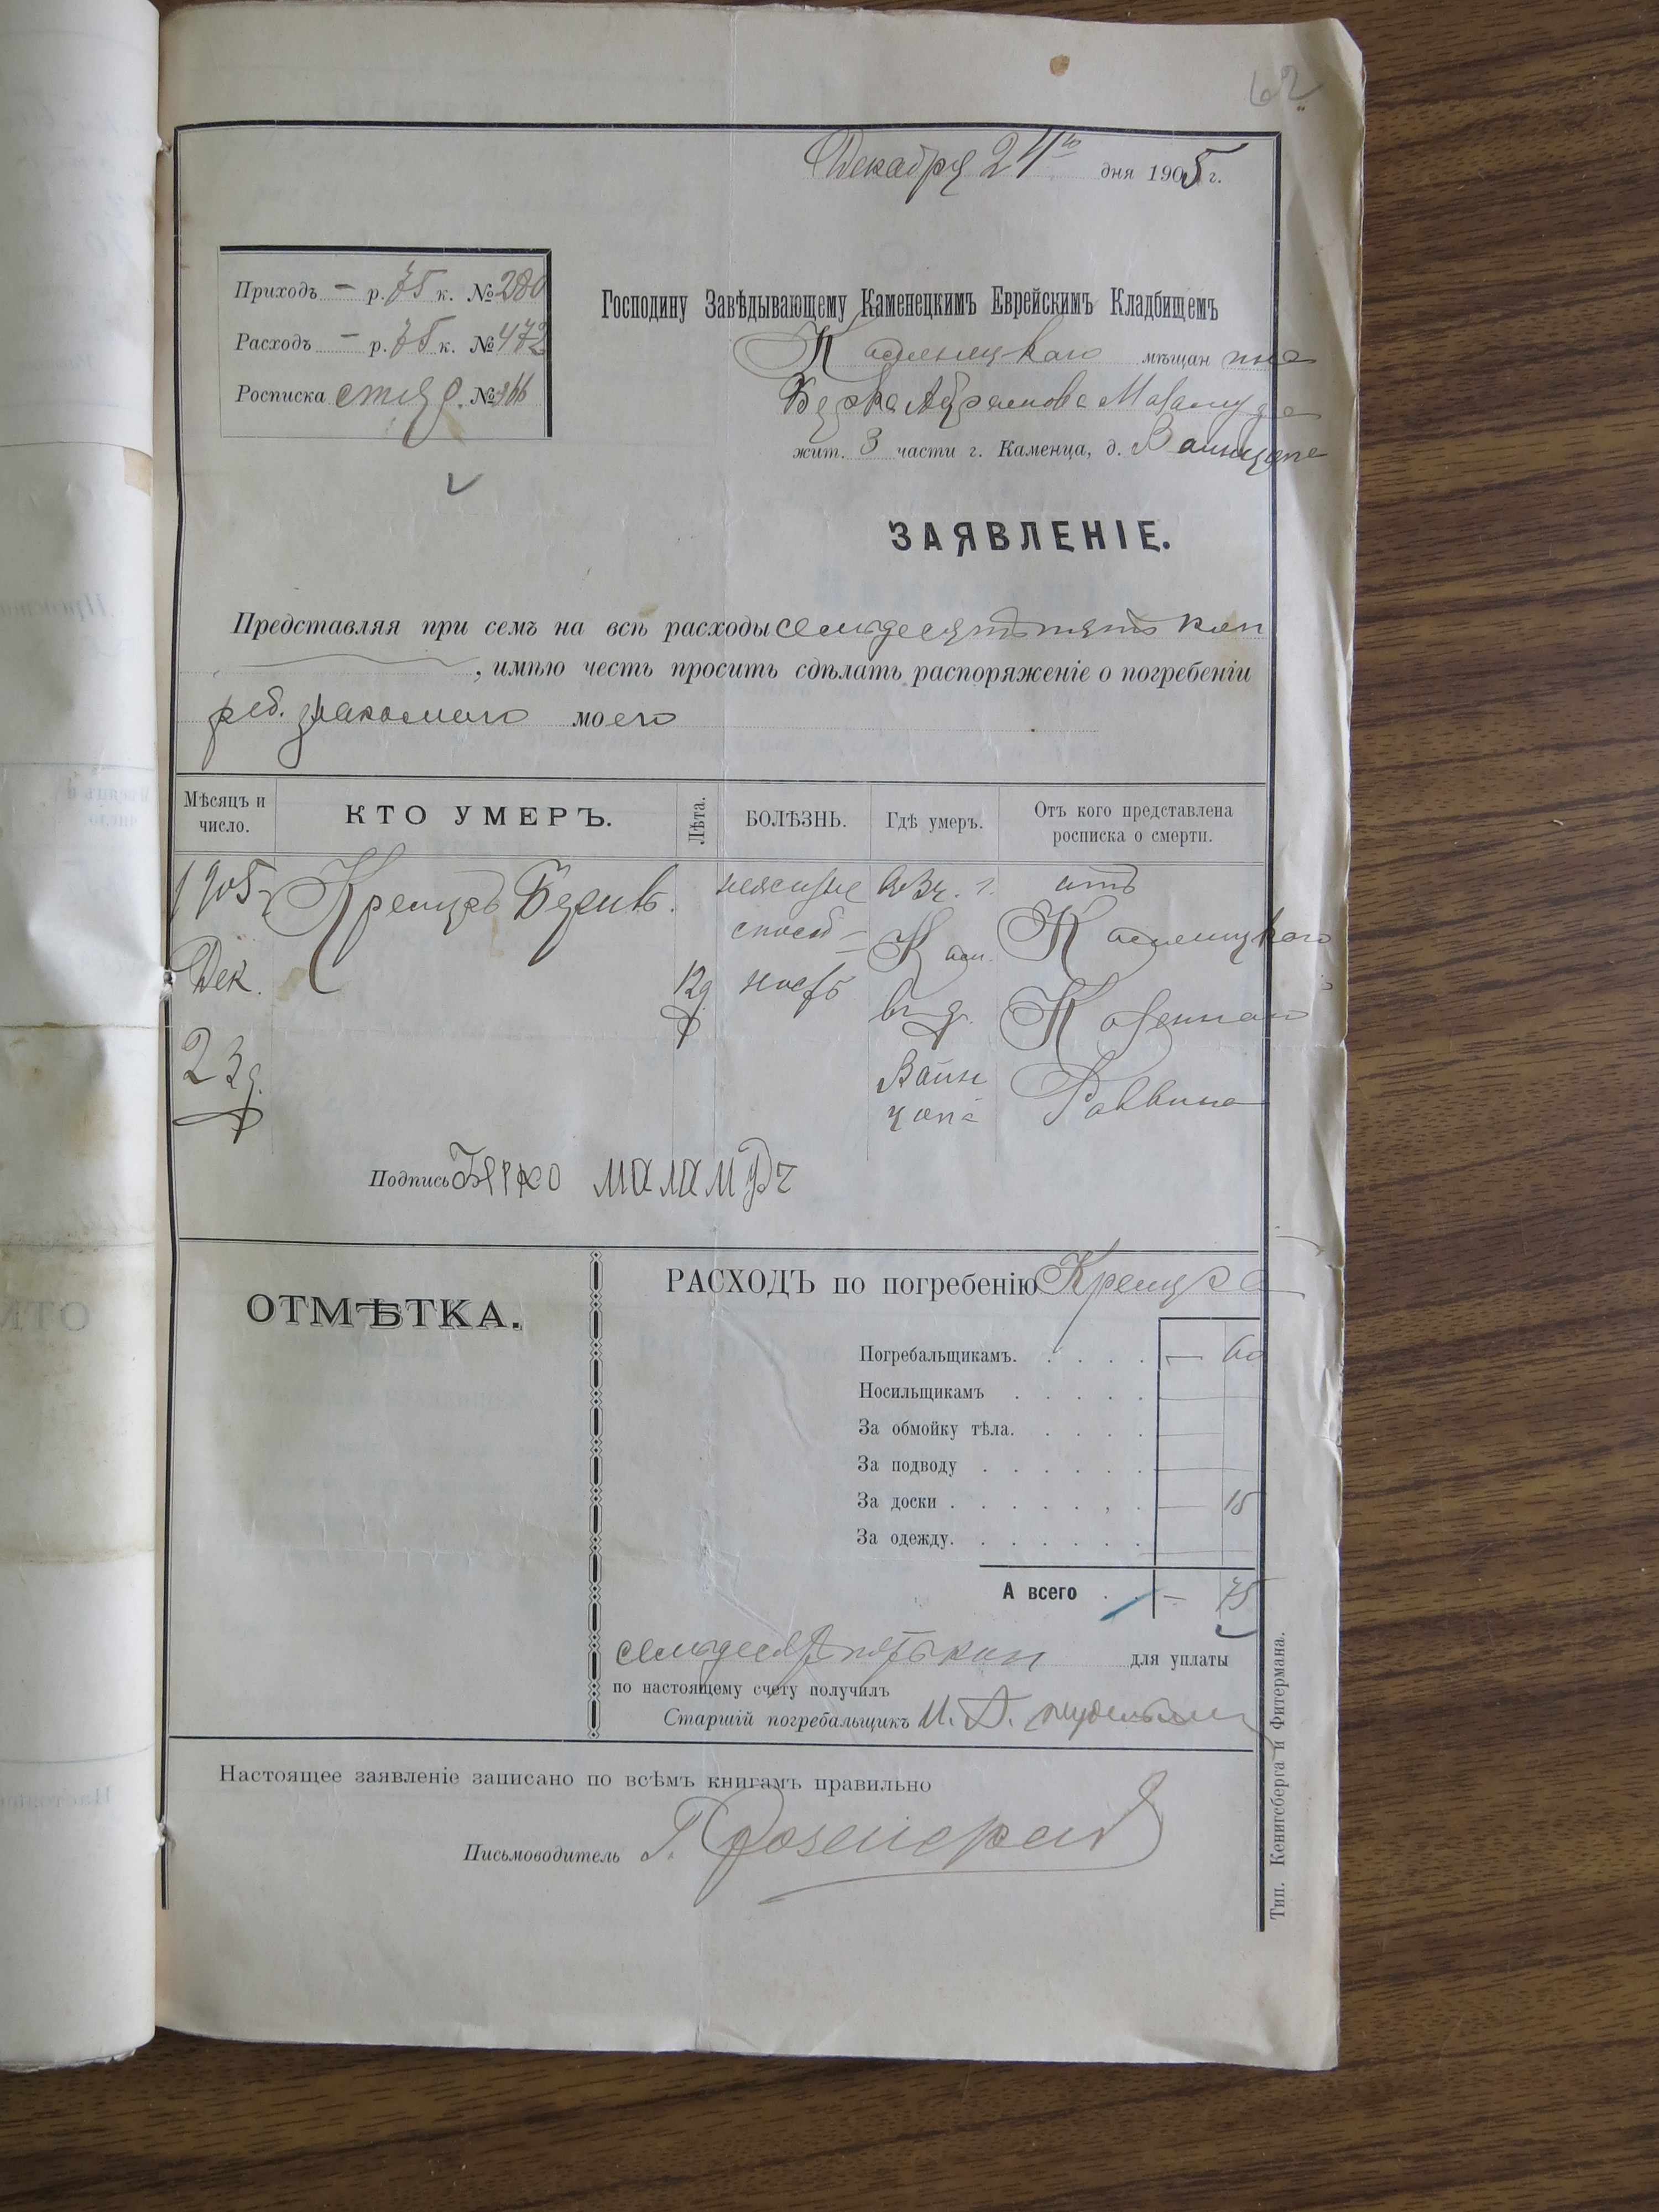 62
Декабря 24го дня 1905 г.
Приходъ — р. 75 к. № 280
Расходъ — р. 75 к. № 472
Росписка № 266
Господину Завѣдывающему Каменецкимъ Еврейскимъ Кладбищемъ
Каменецкаго мѣщанина
Берка Абрамова Маламуда
жит. 3 части г. Каменца, д. Вайнцапа
ЗАЯВЛЕНІЕ.
Представляя при семъ на всѣ расходы семьдесятъ пять коп
, имѣю честь просить сдѣлать распоряженіе о погребеніи
реб. знакомаго моего
Мѣсяцъ и число. КТО УМЕРЪ. Лѣта. БОЛѢЗНЬ. Гдѣ умеръ. Отъ кого представлена росписка о смерти.
1905 Кремеръ неспособ- отъ
Дек. 12д ность Кам. Каменецкаго
23д. въ д. Казеннаго
Вайнцапа Раввина
Подпись Берко маламудъ
ОТМѢТКА.
РАСХОДЪ по погребенію Кремера
Погребальщикамъ. — 60
Носильщикамъ
За обмойку тѣла.
За подводу
За доски — 15
За одежду.
А всего — 75
семьдесятъ пять коп для уплаты
по настоящему счету получилъ
Старшій погребальщикъ И. Д.
Настоящее заявленіе записано по всѣмъ книгамъ правильно
Письмоводитель Г.
Тип. Кенигсберга и Фитермана.